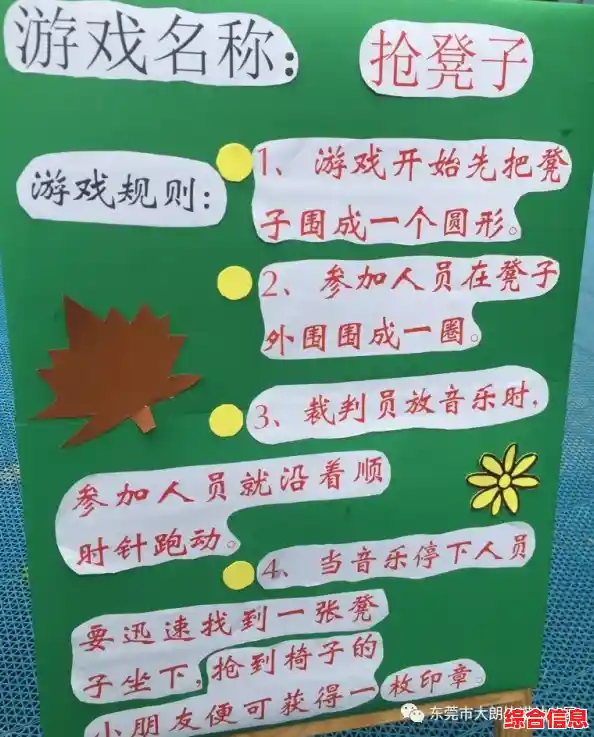 游戏名称：
抢凳子
游戏规则：
1、游戏开始先把凳
子围成一个圆形。
2、参加人员在凳子
外围围成一圈。
3、裁判员放音乐时，
参加人员就沿着顺
时针跑动。
4、当音乐停下人员
要迅速找到一张凳
子坐下，抢到椅子的
小朋友便可获得一枚印章。
东莞市大朗
综合信息